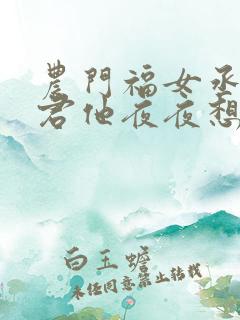 農門福女丞
君他夜夜想
白玉蟾
未经同意禁止转载